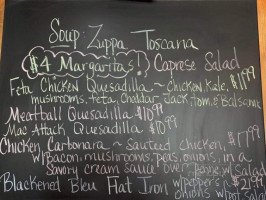 Soup: Zuppa Toscana
$4 Margaritas! Caprese Salad
Feta Chicken Quesadilla ~ chicken, kale, $11.99
mushrooms, feta, cheddar-jack, tom. & Balsamic
Meatball Quesadilla $10.99
Mac Attack Quesadilla $10.99
Chicken Carbonara ~ Sauteed chicken, $17.99
w/ Bacon, mushrooms, peas, onions, in a
savory cream sauce over penne w/ salad
Blackened Bleu Flat Iron w/ peppers & $21.99
onions w/ pot. salad